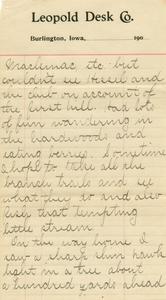 Leopold Desk Co.
Burlington, Iowa, 190
etc but
couldn't see Steel and
we club on account of
the first hill. Had lots
of fun wandering in
the hardwoods and
eating berries. Sometime
I hope to take all the
trails and see
what they do and also
that tempting
little stream.
On the way home I
saw a sharp shin hawk
light in a tree about
a hundred yards ahead